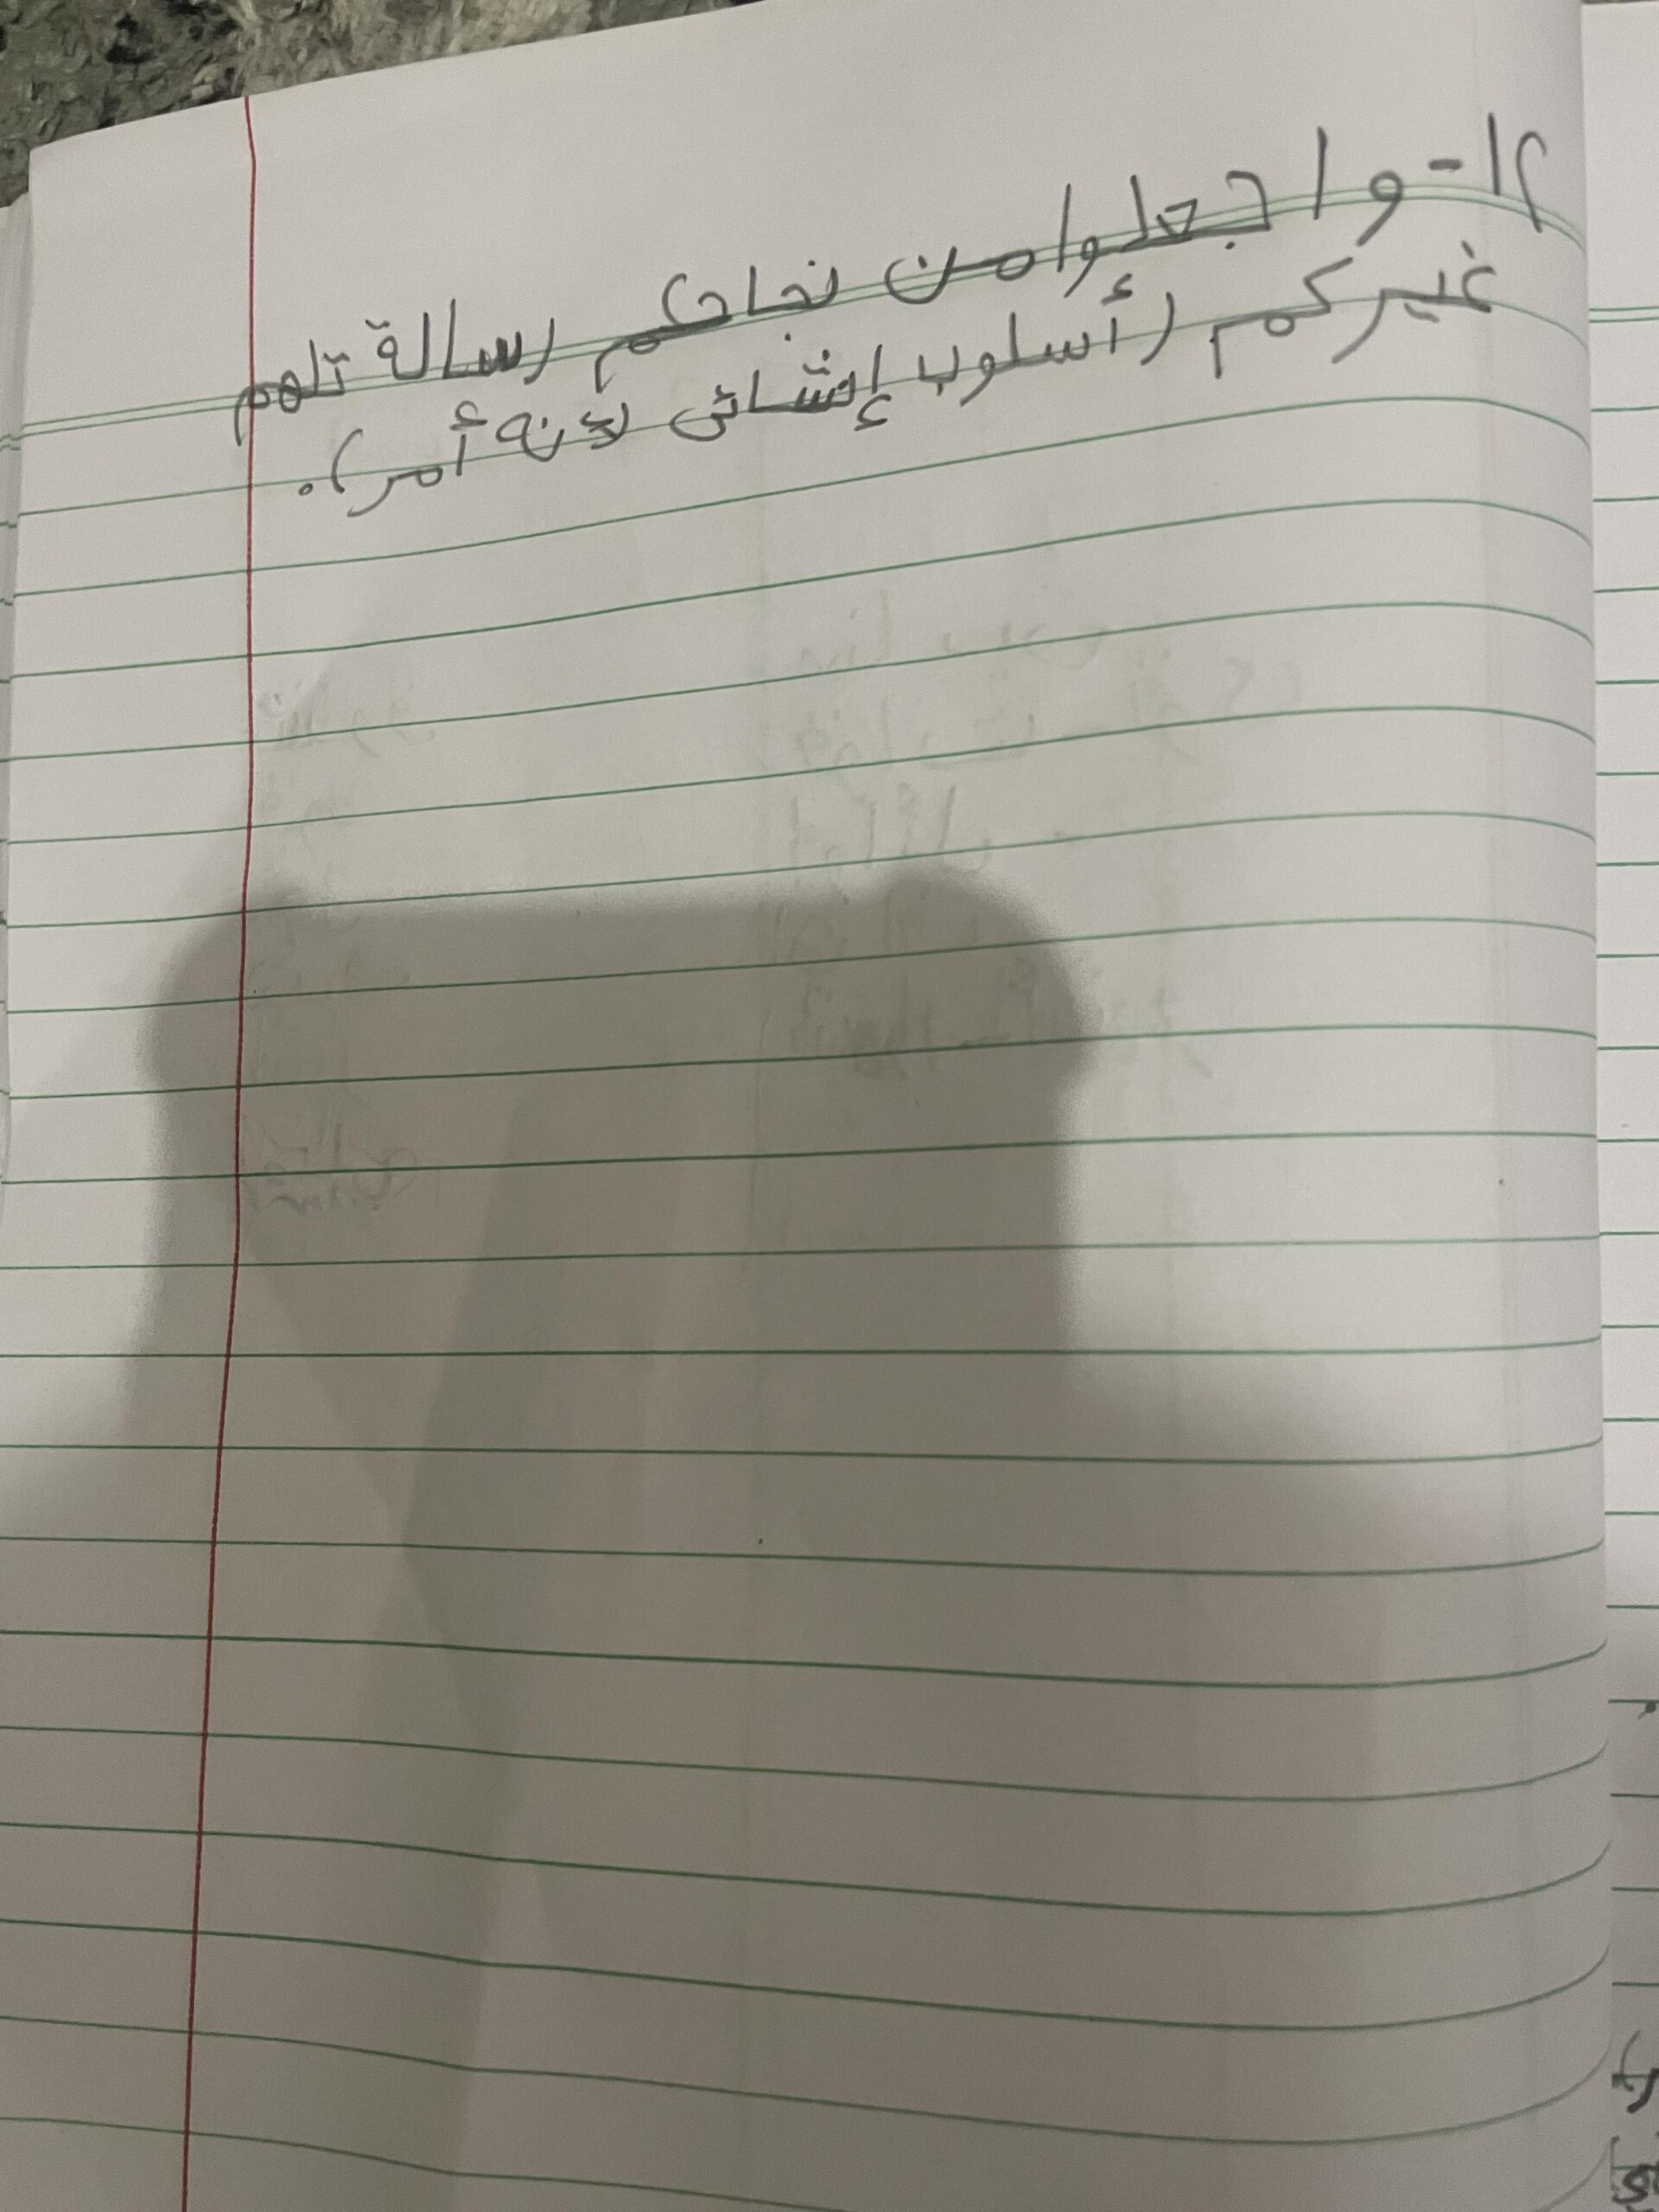 ١٢- واجعلوا من نجاحكم رسالة تلهم
غيركم (أسلوب إنشائى لأنه أمر).